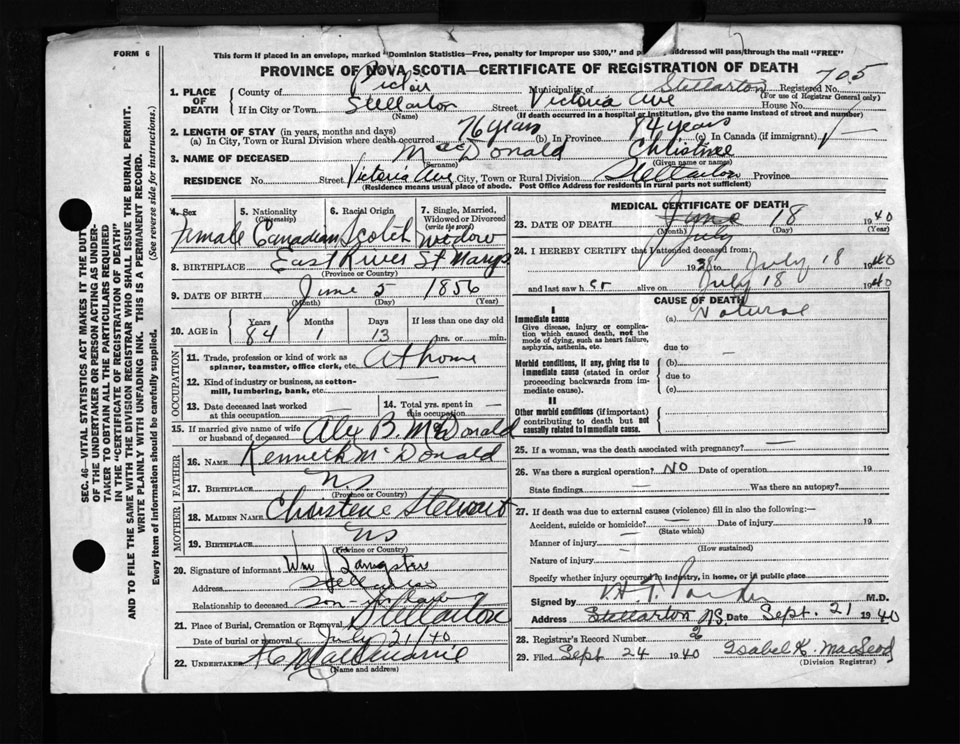 FORM 6
This form if placed in an envelope, marked "Dominion Statistics—Free, penalty for improper use $300," and addressed will pass through the mail "FREE"
PROVINCE OF NOVA SCOTIA—CERTIFICATE OF REGISTRATION OF DEATH
SEC. 46—VITAL STATISTICS ACT MAKES IT THE DUTY
OF THE UNDERTAKER OR PERSON ACTING AS UNDER-
TAKER TO OBTAIN ALL THE PARTICULARS REQUIRED
IN THE "CERTIFICATE OF REGISTRATION OF DEATH"
AND TO FILE THE SAME WITH THE DIVISION REGISTRAR WHO SHALL ISSUE THE BURIAL PERMIT.
WRITE PLAINLY WITH UNFADING INK. THIS IS A PERMANENT RECORD.
Every item of information should be carefully supplied. (See reverse side for instructions.)
1. PLACE OF DEATH County of Pictou Municipality of Stellarton Registered No. 705
(For use of Registrar General only)
If in City or Town Stellarton Street Victoria Ave House No.
(Name) (If death occurred in a hospital or institution, give the name instead of street and number)
2. LENGTH OF STAY (in years, months and days)
(a) In City, Town or Rural Division where death occurred 76 years (b) In Province 84 years (c) In Canada (if immigrant) —
3. NAME OF DECEASED MacDonald Christine
(Surname) (Given name or names)
RESIDENCE No. Street Victoria Ave City, Town or Rural Division Stellarton Province
(Residence means usual place of abode. Post Office Address for residents in rural parts not sufficient)
4. Sex 5. Nationality (Citizenship) 6. Racial Origin 7. Single, Married, Widowed or Divorced (write the word)
Female Canadian Scotch Widow
8. BIRTHPLACE East River St Marys
(Province or Country)
9. DATE OF BIRTH June 5 1856
(Month) (Day) (Year)
10. AGE in Years Months Days If less than one day old
84 1 13 hrs. or min.
OCCUPATION
11. Trade, profession or kind of work as spinner, teamster, office clerk, etc. At home
12. Kind of industry or business, as cotton-mill, lumbering, bank, etc. —
13. Date deceased last worked at this occupation — 14. Total yrs. spent in this occupation —
15. If married give name of wife or husband of deceased Alex B. McDonald
FATHER
16. Name Kenneth McDonald
17. BIRTHPLACE N.S.
(Province or Country)
MOTHER
18. MAIDEN NAME Christene Stewart
19. BIRTHPLACE NS
(Province or Country)
20. Signature of informant Wm J Sangster
Address Stellarton
Relationship to deceased son in law
21. Place of Burial, Cremation or Removal Stellarton
Date of burial or removal July 21/40
22. UNDERTAKER
(Name and address)
MEDICAL CERTIFICATE OF DEATH
23. DATE OF DEATH June 18 1940
(Month) (Day) (Year)
July
24. I HEREBY CERTIFY that I attended deceased from:
1938 July 18 1940
and last saw her alive on July 18 1940
CAUSE OF DEATH
I
Immediate cause (a) Natural
Give disease, injury or complication which caused death, not the mode of dying, such as heart failure, asphyxia, asthenia, etc.
due to —
Morbid conditions, if any, giving rise to immediate cause (stated in order proceeding backwards from immediate cause).
(b) —
due to
(c) —
II
Other morbid conditions (if important) contributing to death but not causally related to immediate cause. —
25. If a woman, was the death associated with pregnancy? —
26. Was there a surgical operation? NO Date of operation 19
State findings — Was there an autopsy?
27. If death was due to external causes (violence) fill in also the following:—
Accident, suicide or homicide? — Date of injury 19
(State which)
Manner of injury —
(How sustained)
Nature of injury —
Specify whether injury occurred in industry, in home, or in public place
Signed by M.D.
Address Stellarton NS Date Sept. 21 1940
28. Registrar's Record Number 2
29. Filed Sept 24 1940 Isabel K. MacLeod
(Division Registrar)